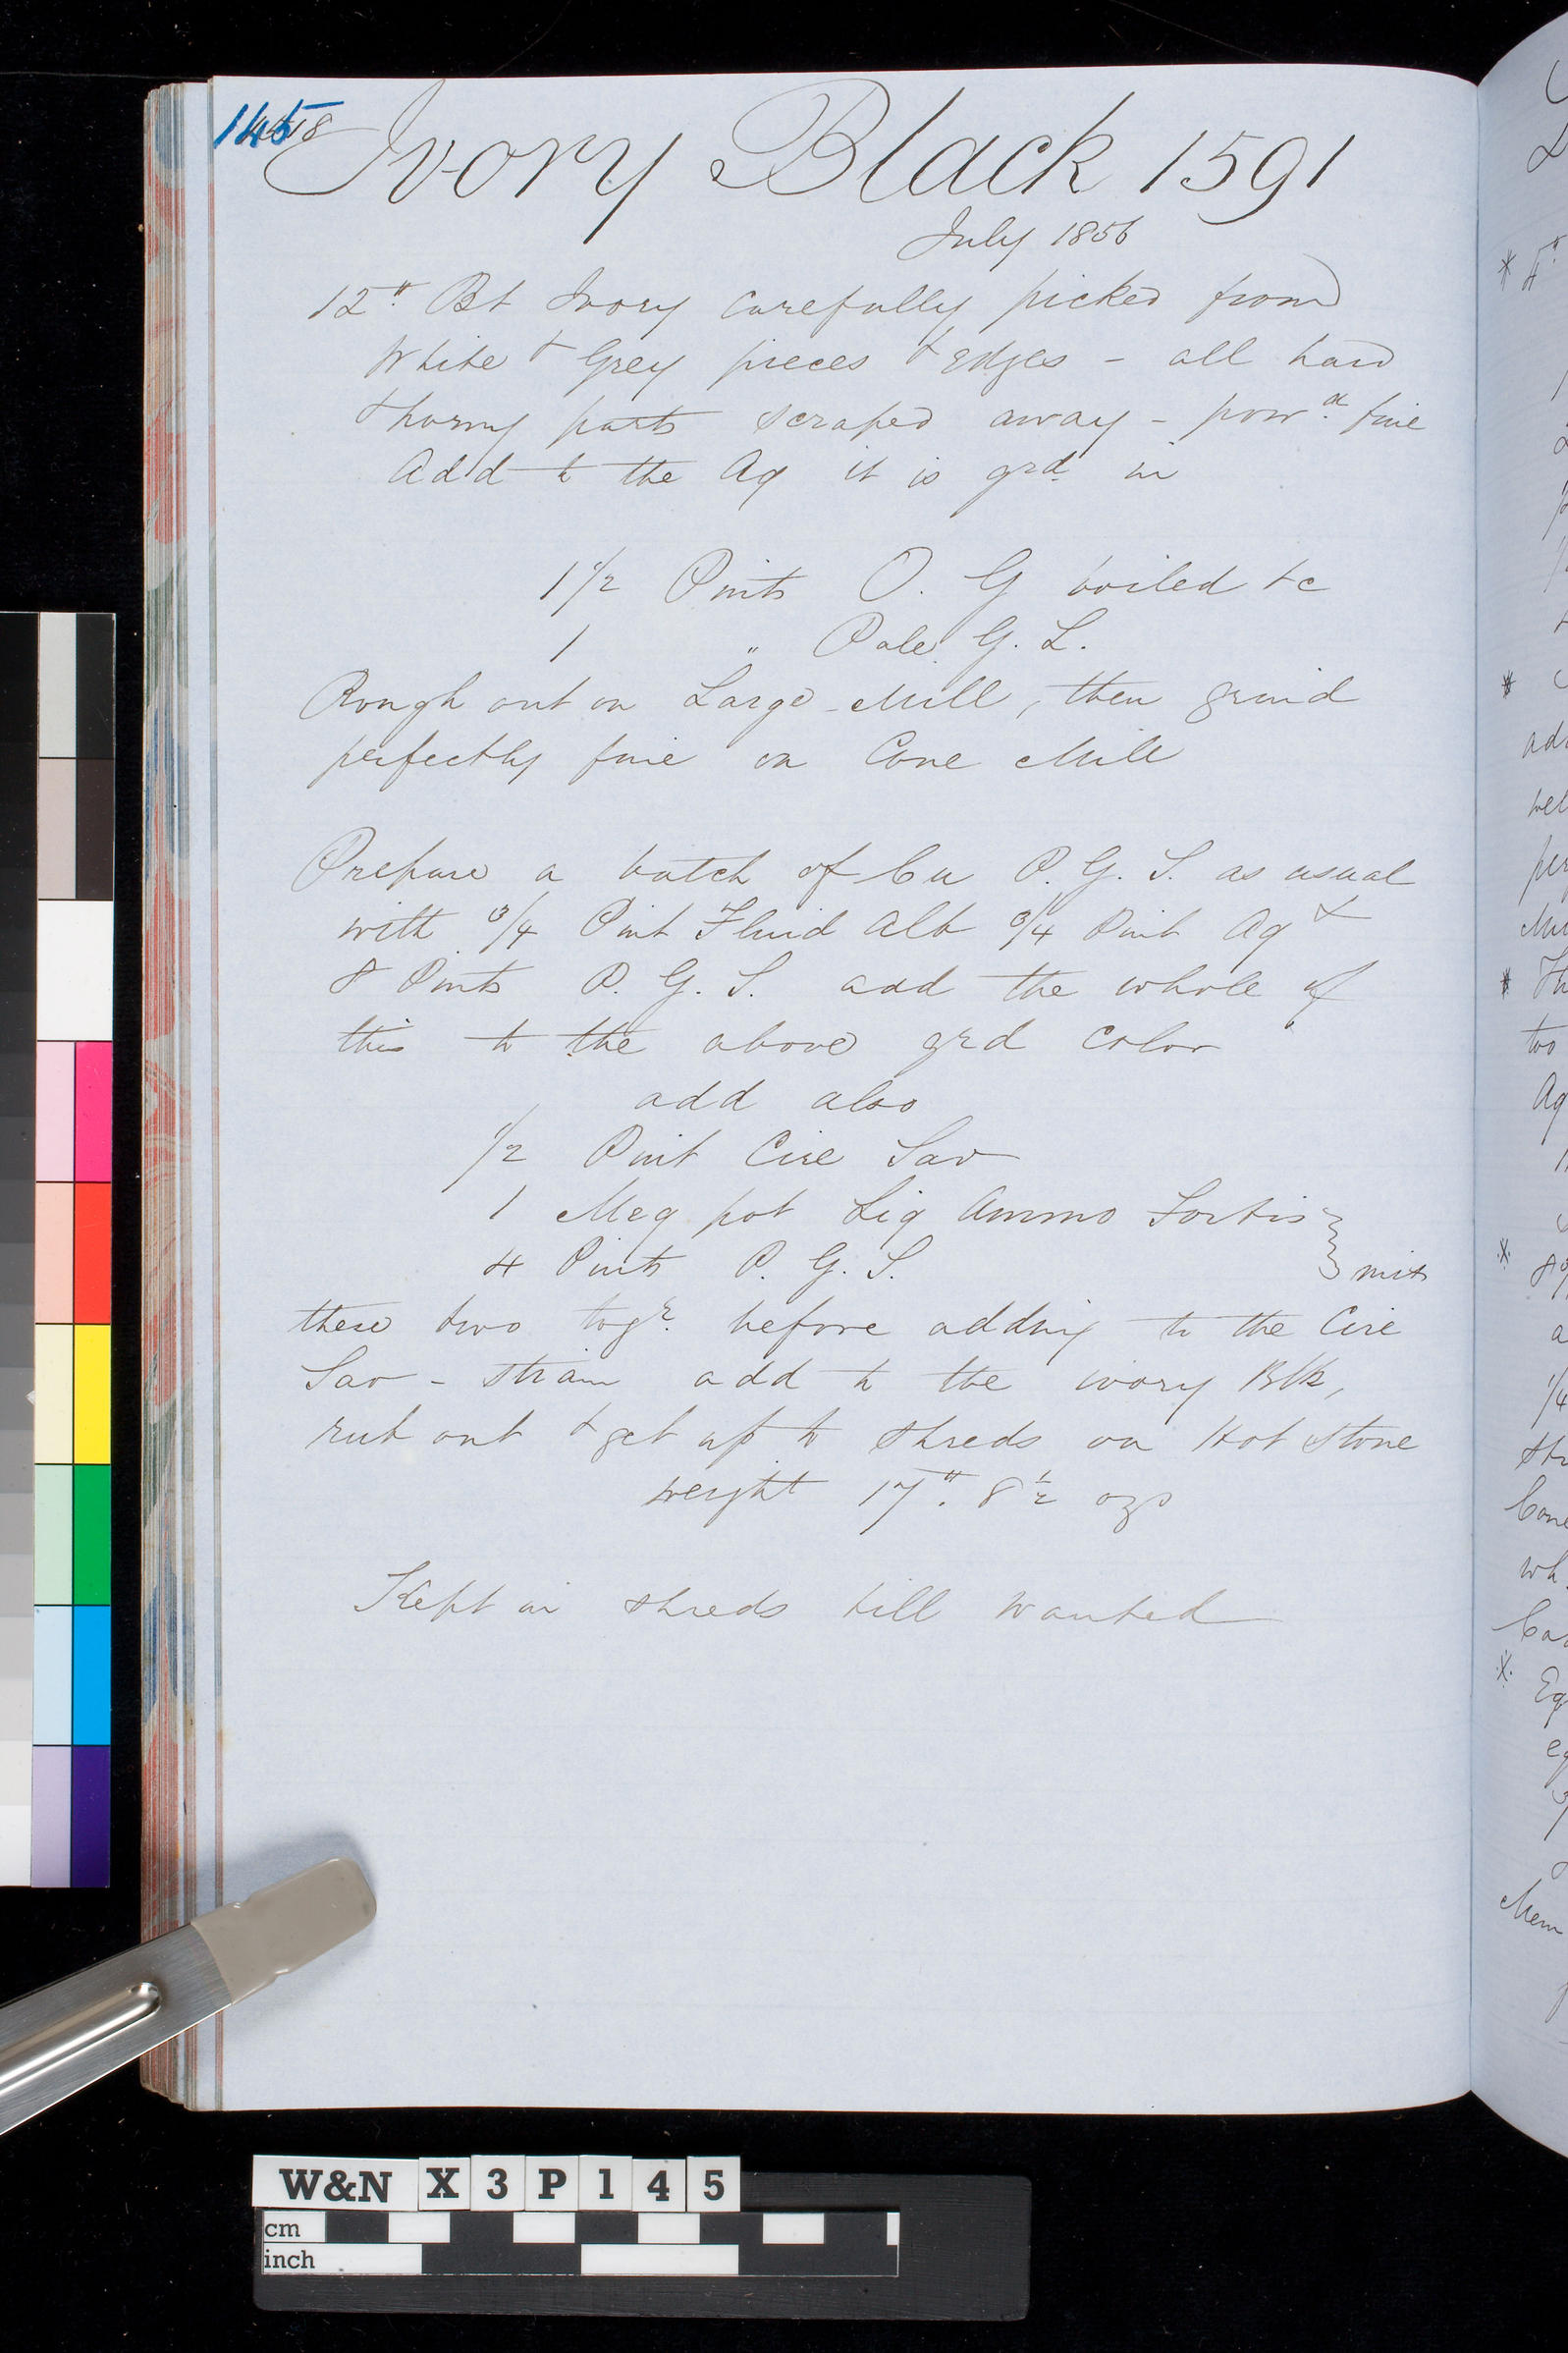 145
Ivory Black 1591
July 1856
12" Bt Ivory carefully picked from
White & Grey pieces & edges - all hard
& horny parts scraped away - powd. fine
Add to the Aq it is grd. in
1 1/2 Pints O. G boiled &c
1 " Pale G. L.
Rough out on Large Mill, then grind
perfectly fine on Cone Mill
Prepare a batch of Cu P. G. S. as usual
with 3/4 Pint Fluid Alb 3/4 Pint Aq &
8 Pints P. G. S. add the whole of
this to the above grd color
add also
1/2 Pint Cire Sav
1 Meg pot Liq Ammo Fortis
4 Pints P. G. S. } mix
these two togr. before adding to the Cire
Sav - strain add to the ivory Blk,
rub out & get up to shreds on Hot Stone
weight 17". 8 1/2 ozs
Kept in shreds till wanted
* 4"
ad
wel
per
Mil
* Th
too
Aq
a
1/4
str
Cone
wh
Eq
eq
Mem
W&N X 3 P 1 4 5
cm
inch